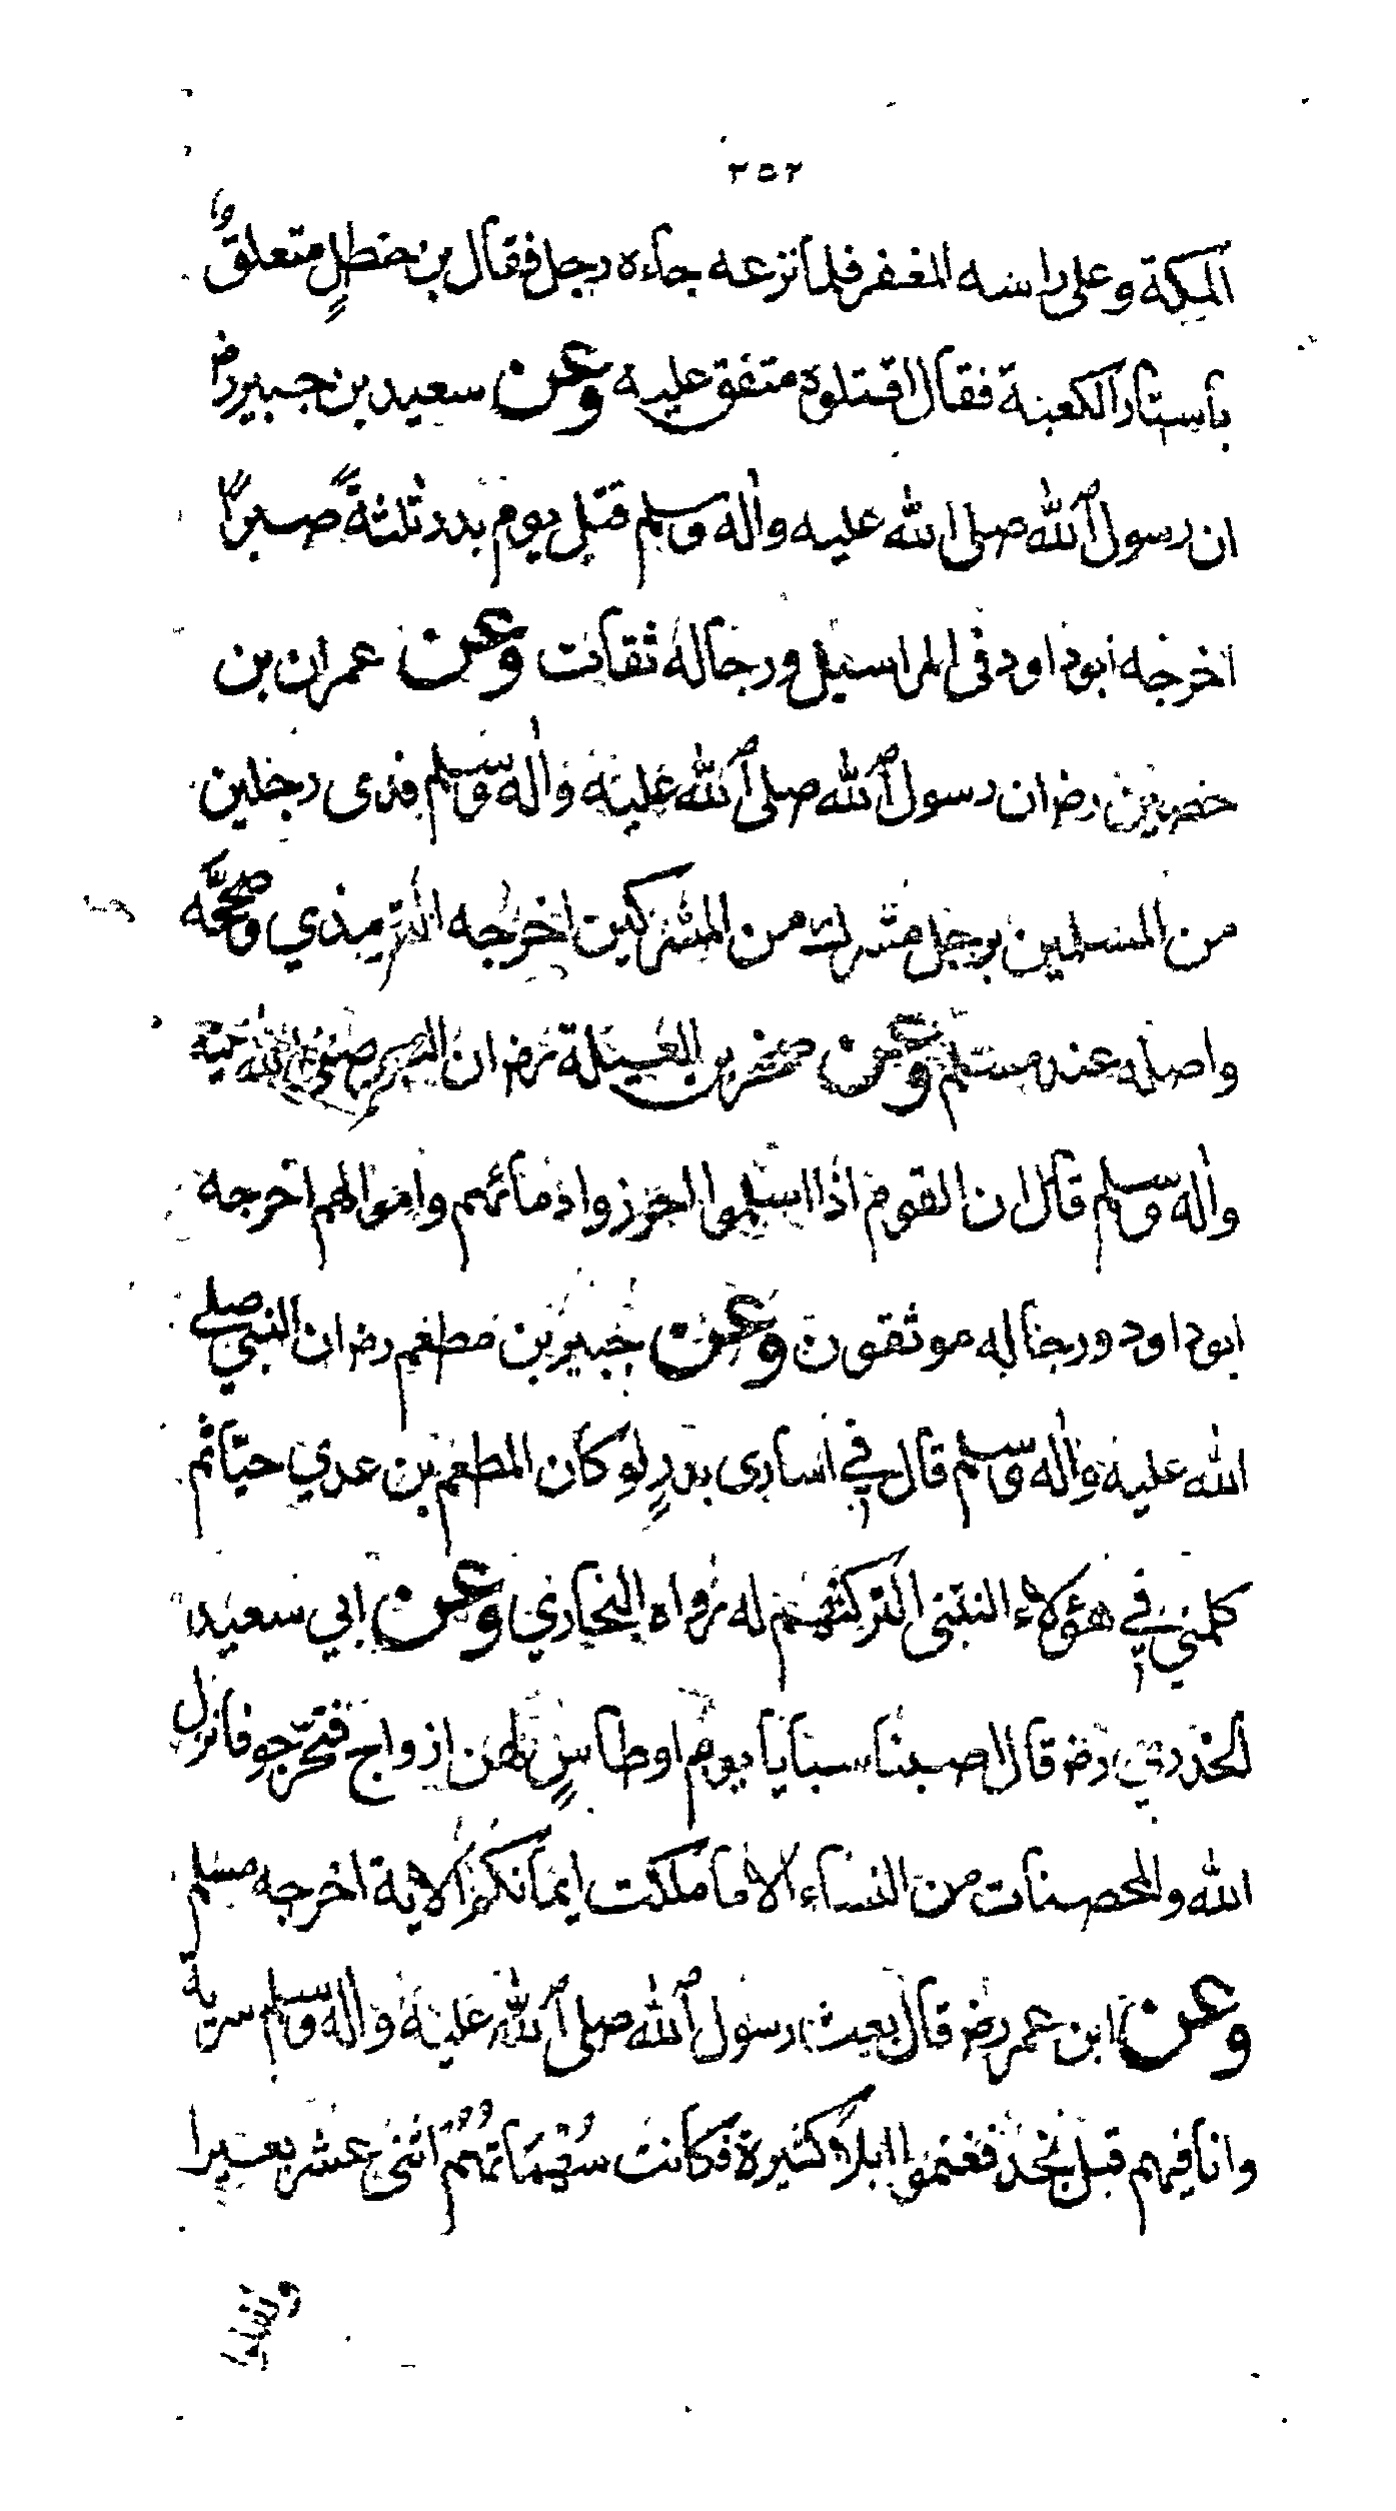 ٢٥٢
المكة وعلى راسه المغفر فلما نزعه جاءه رجل فقال بن خطلٍ متعلقٌ
باستار الكعبة فقال اقتلوه متفق عليه وعن سعيد بن جبير رض
ان رسول الله صلى الله عليه واله وسلم قتل يوم بدر ثلثةً صبراً
اخرجه ابوداود فى المراسيل ورجاله ثقات وعن عمران بن
حصين رض ان رسول الله صلى الله عليه واله وسلم فدى رجلين
من المسلمين برجل مشرك من المشركين اخرجه الترمذي وصححّه
واصله عند مسلم وعن صخر بن العيلة رض ان النبي صلى الله عليه
واله وسلم قال ان القوم اذا اسلموا احرزوا دمائهم واموالهم اخرجه
ابوداود ورجاله موثقون وعن جبير بن مطعم رض ان النبي صلى
الله عليه واله وسلم قال في اسارى بدرٍ لو كان المطعم بن عدي حيّا ثم
كلمني في هؤلاء النتنى لتركتهم له رواه البخاري وعن ابي سعيد
الخدري رض قال اصبنا سبايا يوم اوطاسٍ لهن ازواج فتحرّجو فانزل
الله والمحصنات من النساء الا ما ملكت ايمانكم الاية اخرجه مسلم
وعن ابن عمر رض قال بعث رسول الله صلى الله عليه واله وسلم سرية
وانا فيهم قبل نجد فغنموا ابلاً كثيرة فكانت سُهمَانهُم اثنى عشر بعيرا